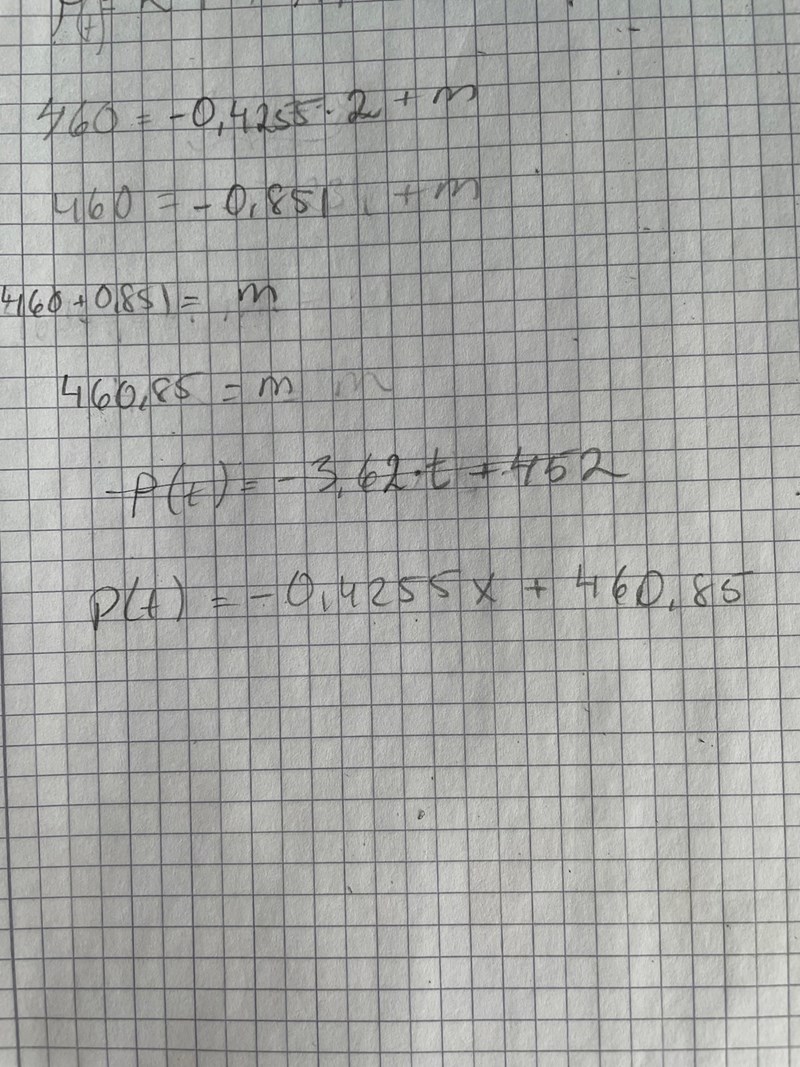 (t)
460 = -0,4255 · 2 + m
460 = -0,851 + m
460 + 0,851 = m
460,85 = m m
P(t) = -3,62 · t + 452
P(t) = -0,4255x + 460,85